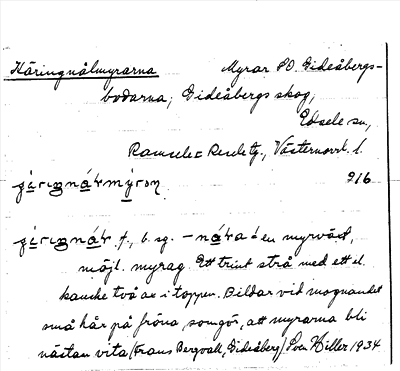 Häringnålmyrarna Myrar SO. Gideåbergs-
bodarna, Gideåbergs skog,
Edsele sn,
Ramsele o Resele tg., Västernorrl. l.
216
f., b. sg. – en myrväxt,
möjl. myrag. Ett trint strå med ett el.
kanske två ax i toppen. Bildar vid mognandet
små hår på fröna, som gör, att myrarna bli
nästan vita (Frans Bergvall, Gideåberg) Sven Hiller 1934